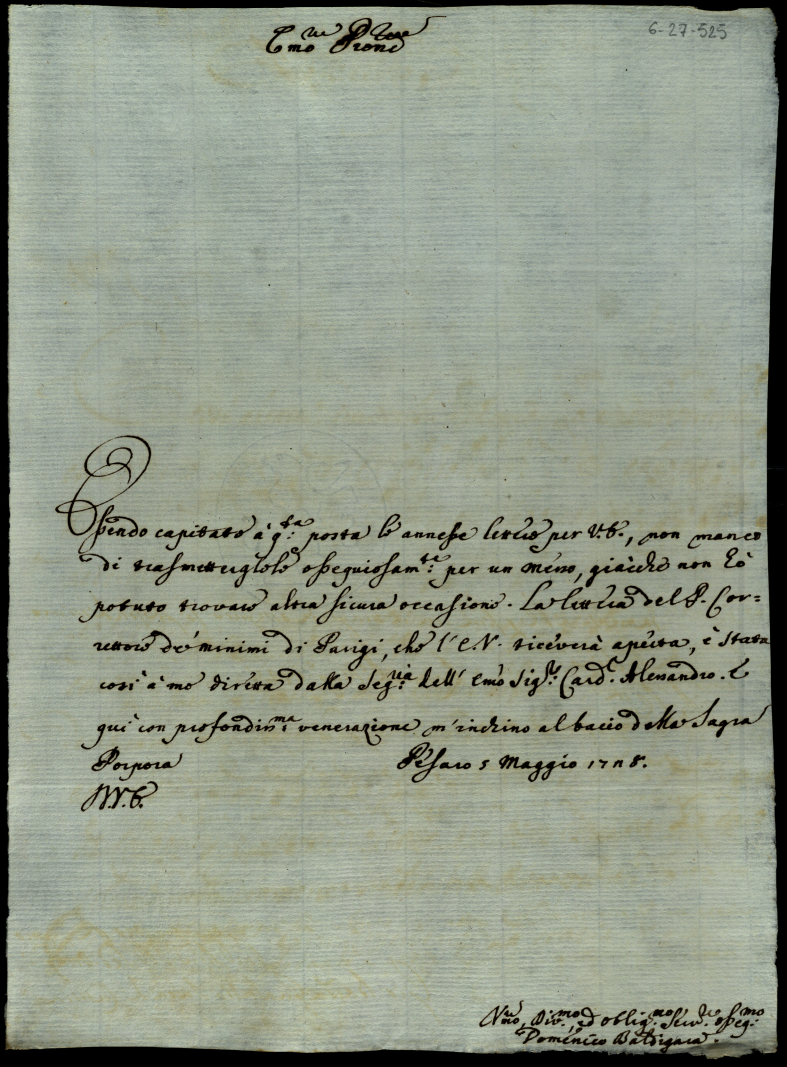 6-27-525
Emo Prone
Essendo capitate à q.sta posta le annesse lettere per V.E., non manco
di trasmettergliele ossequiosam.te per un messo, giàche non hò
potuto trovare altra sicura occasione. La lettera del P. Cor=
rettore de' minimi di Parigi, che l'E.V. riceverà aperta, è stata
così à me diretta dalla Seg.ria dell' Emo Sig.r Card.l Alessandro. E
qui con profondis.ma venerazione m'inchino al bacio della Sagra
Porpora Pesaro 5 Maggio
D.V.E.
ed oblig.mo Ser.re osseq.mo
Domenico Baldigara.